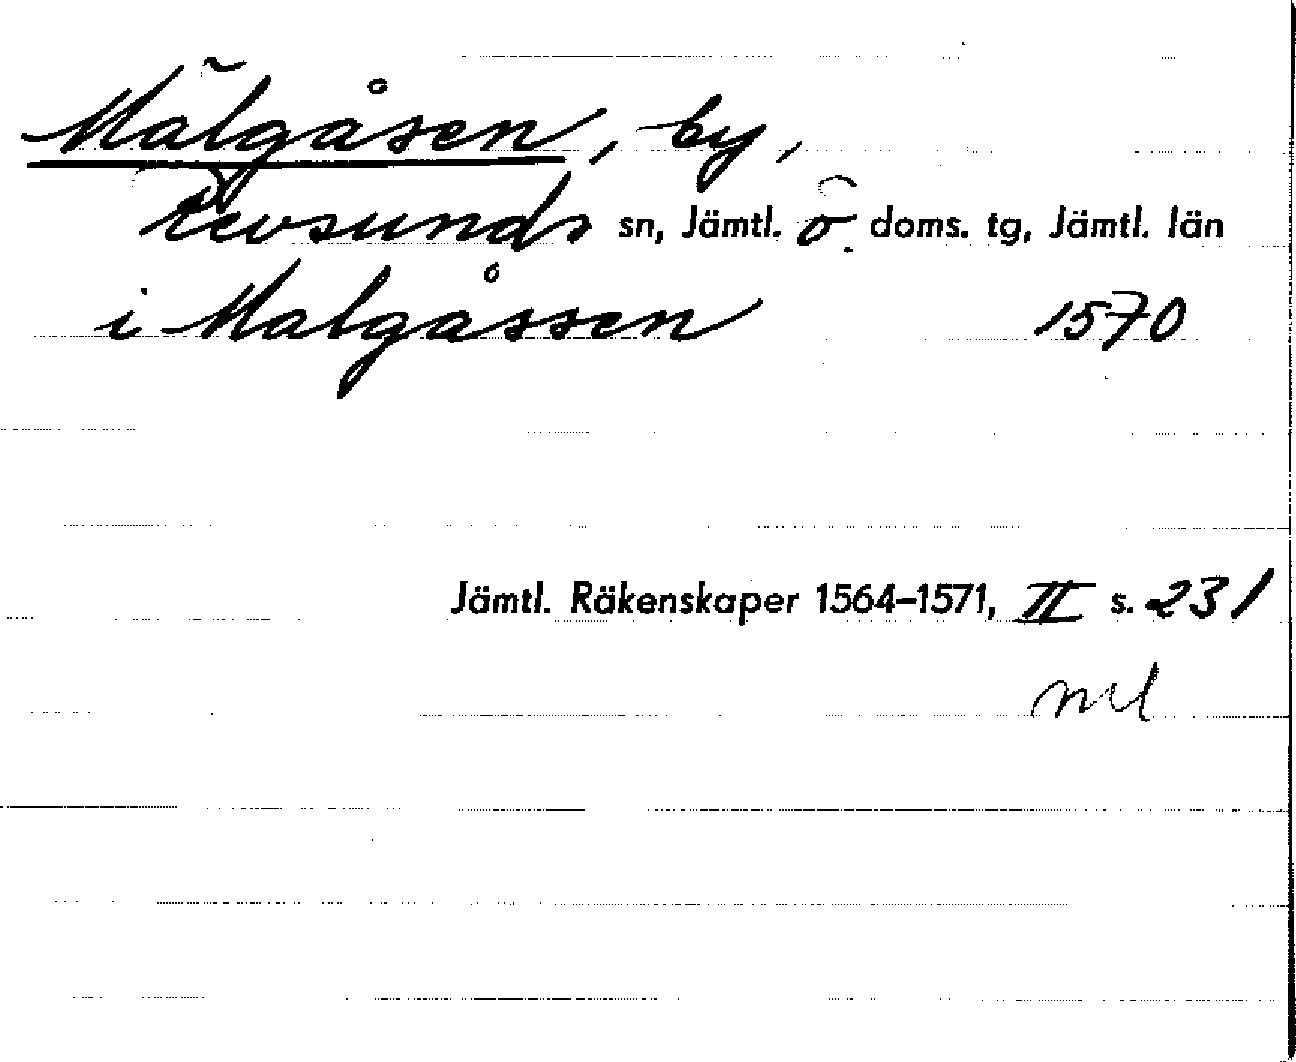 Mälgåsen, by,
Revsunds sn, Jämtl. ö. doms. tg, Jämtl. län
i Malgåssen 1570
Jämtl. Räkenskaper 1564–1571, II s. 231